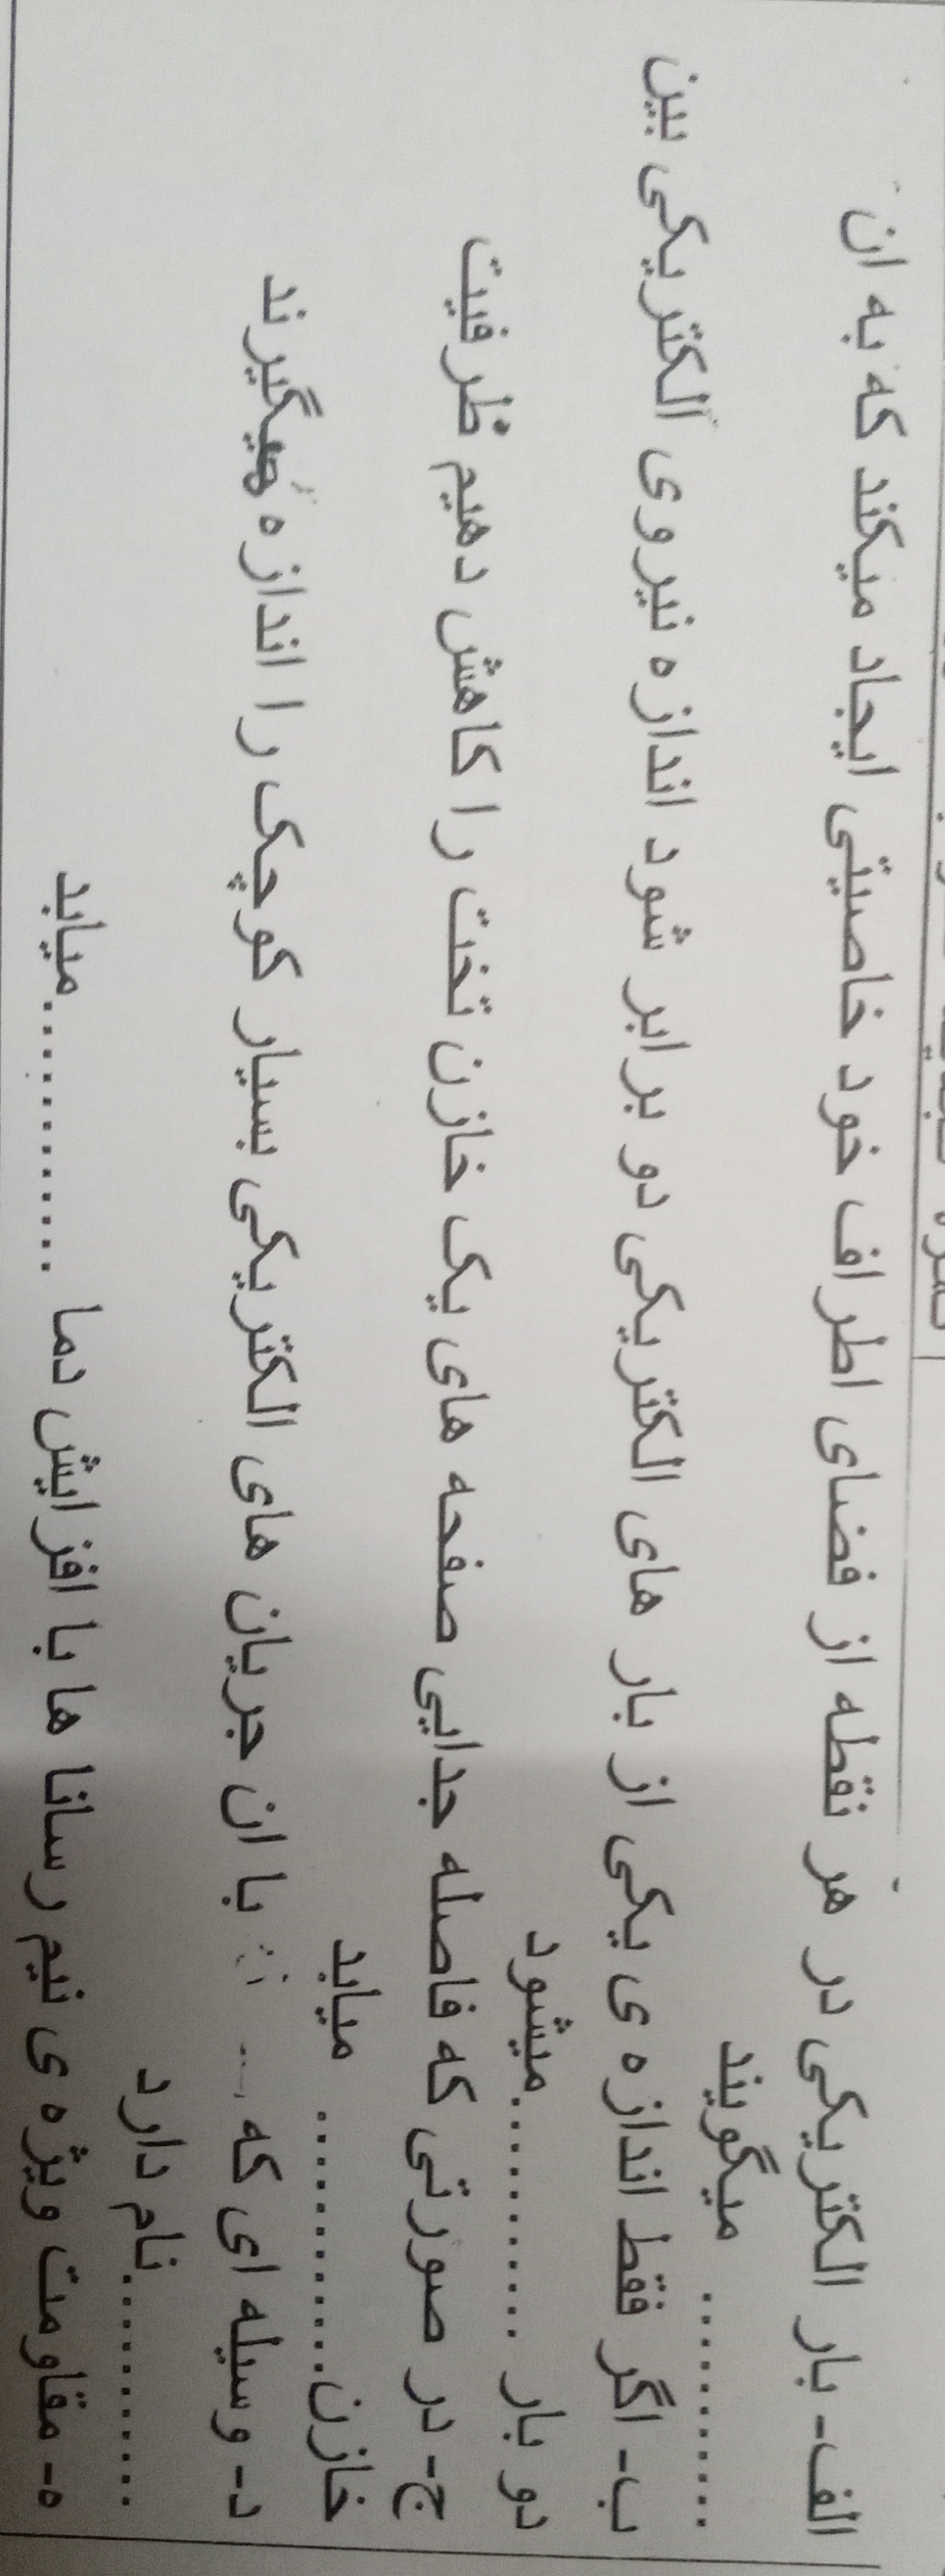 الف- بار الکتریکی در هر نقطه از فضای اطراف خود خاصیتی ایجاد میکند که به ان
............ میگویند
ب- اگر فقط اندازه ی یکی از بار های الکتریکی دو برابر شود اندازه نیروی الکتریکی بین
دو بار ............میشود
ج- در صورتی که فاصله جدایی صفحه های یک خازن تخت را کاهش دهیم ظرفیت
خازن............ میابد
د- وسیله ای که با ان جریان های الکتریکی بسیار کوچک را اندازه میگیرند
............نام دارد
ه- مقاومت ویژه ی نیم رسانا ها با افزایش دما ............میابد